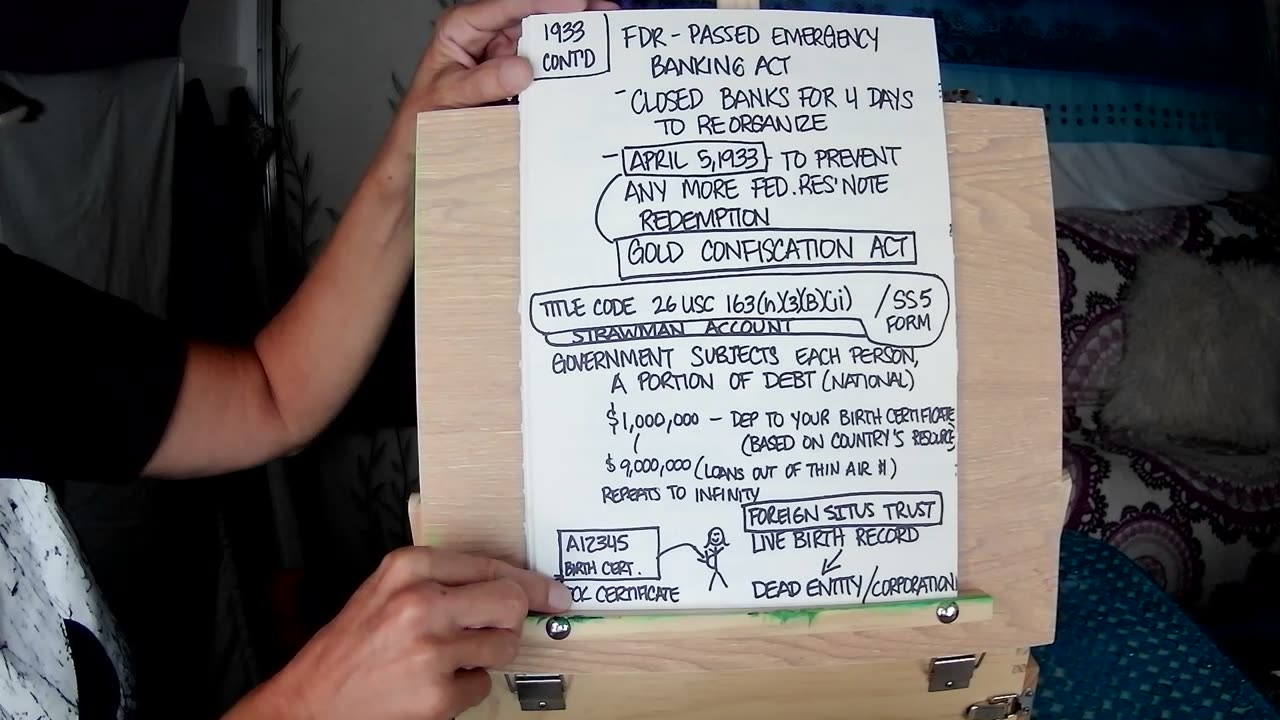 1933
CONT'D
FDR - PASSED EMERGENCY
BANKING ACT
- CLOSED BANKS FOR 4 DAYS
TO REORGANIZE
- APRIL 5, 1933 - TO PREVENT
ANY MORE FED. RES' NOTE
REDEMPTION
GOLD CONFISCATION ACT
TITLE CODE 26 USC 163(h)(3)(B)(ii) / SS5
FORM
STRAWMAN ACCOUNT
GOVERNMENT SUBJECTS EACH PERSON,
A PORTION OF DEBT (NATIONAL)
$1,000,000 - DEP TO YOUR BIRTH CERTIFICATE
(BASED ON COUNTRY'S RESOURCE
$9,000,000 (LOANS OUT OF THIN AIR #)
REPEATS TO INFINITY
FOREIGN SITUS TRUST
LIVE BIRTH RECORD
DEAD ENTITY/CORPORATION
A12345
BIRTH CERT.
CERTIFICATE